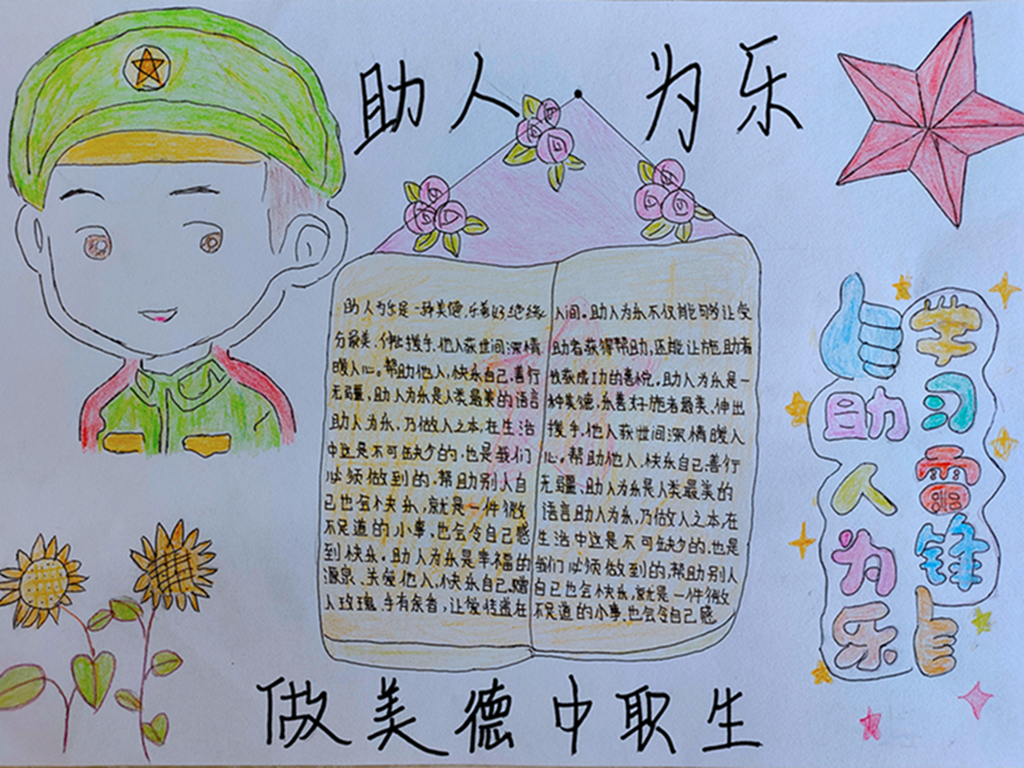 助人为乐
助人为乐是一种美德,乐善好施者
分最美、伸出援手,他人获世间深情
暖人心。帮助他人,快乐自己。善行
无疆,助人为乐是人类最美的语言
助人为乐,乃做人之本,在生活
中这是不可缺少的,也是我们
必须做到的,帮助别人自
己也会快乐,就是一件微
不足道的小事,也会令自己感
到快乐。助人为乐是幸福的
源泉、关爱他人,快乐自己。赠
人玫瑰,手有余香,让爱传递在
人间。助人为乐不仅能够让受
助者获得帮助,还能让施助者
收获成功的喜悦。助人为乐是一
种美德,乐善好施者最美、伸出
援手,他人获世间深情暖人
心。帮助他人,快乐自己。善行
无疆、助人为乐是人类最美的
语言助人为乐,乃做人之本,在
生活中这是不可缺少的,也是
我们必须做到的,帮助别人
自己也会快乐,就是一件微
不足道的小事,也会令自己感
学习雷锋
助人为乐
做美德中职生